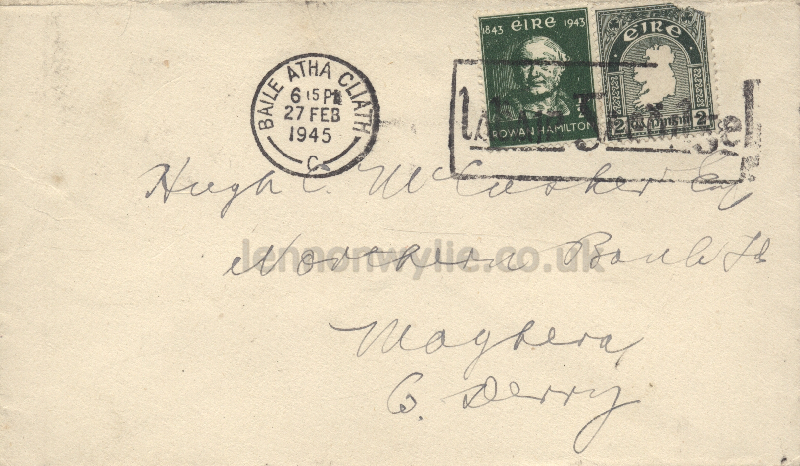 1843 éire 1943
½
ROWAN HAMILTON
éire
2 2
BAILE ATHA CLIATH
6 15 PM
27 FEB
1945
C
Hugh C. McCusker Esq
Northern Bank Ld
lennonwylie.co.uk
Maghera
Co. Derry